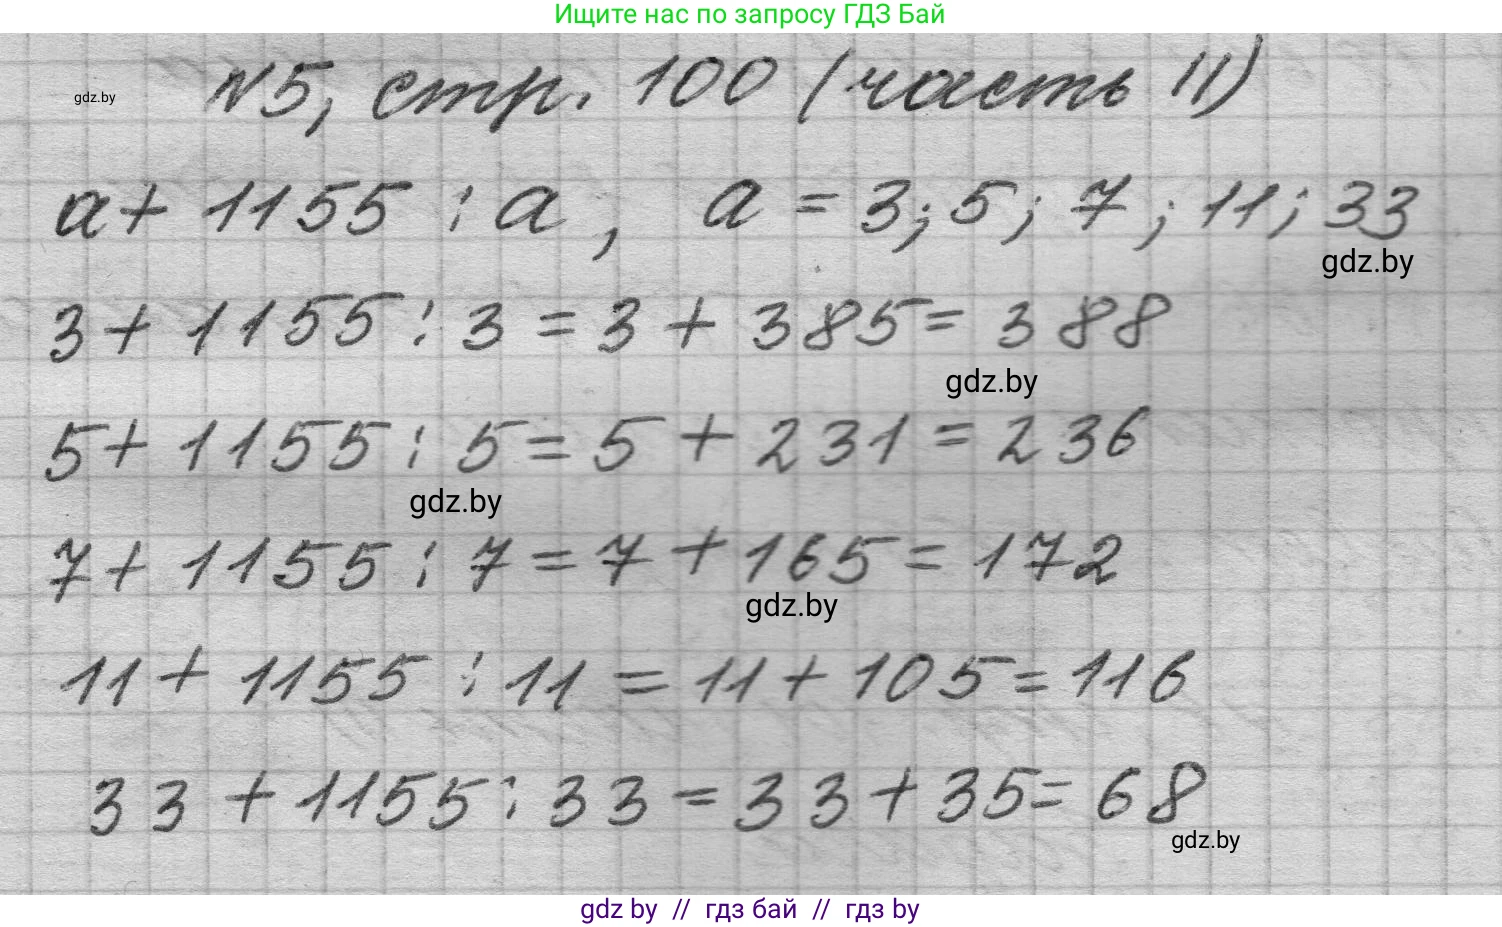 Ищите нас по запросу ГДЗ Бай
gdz.by
№5, стр. 100 (часть II)
a + 1155 : a, a = 3; 5; 7; 11; 33
gdz.by
3 + 1155 : 3 = 3 + 385 = 388
gdz.by
5 + 1155 : 5 = 5 + 231 = 236
gdz.by
7 + 1155 : 7 = 7 + 165 = 172
gdz.by
11 + 1155 : 11 = 11 + 105 = 116
33 + 1155 : 33 = 33 + 35 = 68
gdz.by
gdz by // гдз бай // гдз by